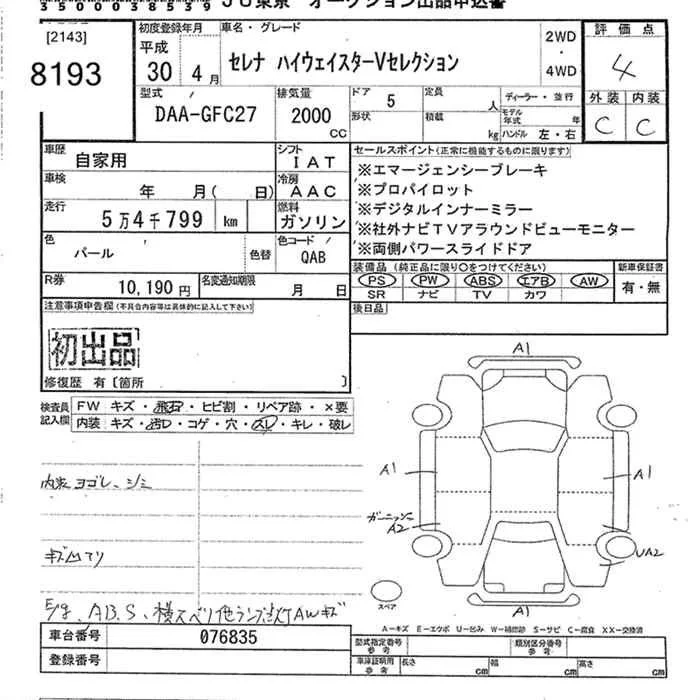 35000038539 JU東京 オークション出品申込書
[2143]
8193
初度登録年月
平成
30年 4月
車名・グレード
セレナ ハイウェイスターVセレクション
2WD
・
4WD
評価点
4
外装 内装
C C
型式
DAA-GFC27
排気量
2000
CC
ドア 5
形状
定員 人
積載 kg
ディーラー・並行
モデル年式 年
ハンドル 左・右
車歴
自家用
シフト
IAT
車検
年 月( 日)
冷房
AAC
走行
5万4千799 km
燃料
ガソリン
色
パール
色替
色コード
QAB
R券
10,190円
名変通知期限
月 日
セールスポイント(正常に機能するものに限ります)
※エマージェンシーブレーキ
※プロパイロット
※デジタルインナーミラー
※社外ナビTVアラウンドビューモニター
※両側パワースライドドア
装備品(純正品に限り○をつけてください)
PS PW ABS エアB AW
SR ナビ TV カワ
新車保証書
有・無
後日品
注意事項申告欄(不具合内容等は具体的に記入して下さい)
初出品
修復歴 有〔箇所 〕
検査員
記入欄
FW キズ・飛石・ヒビ割・リペア跡・×要
内装 キズ・汚レ・コゲ・穴・スレ・キレ・破レ
内装ヨゴレ、シミ
キズ凹アリ
A1
A1
A1
ガーニッシュ
A2
UA2
A1
スペア
A-キズ E-エクボ U-凹み W-補修跡 S-サビ C-腐食 XX-交換済
車台番号 076835
登録番号
型式指定番号
参考
類別区分番号
参考
車庫証明用
参考
長さ cm 幅 cm 高さ cm